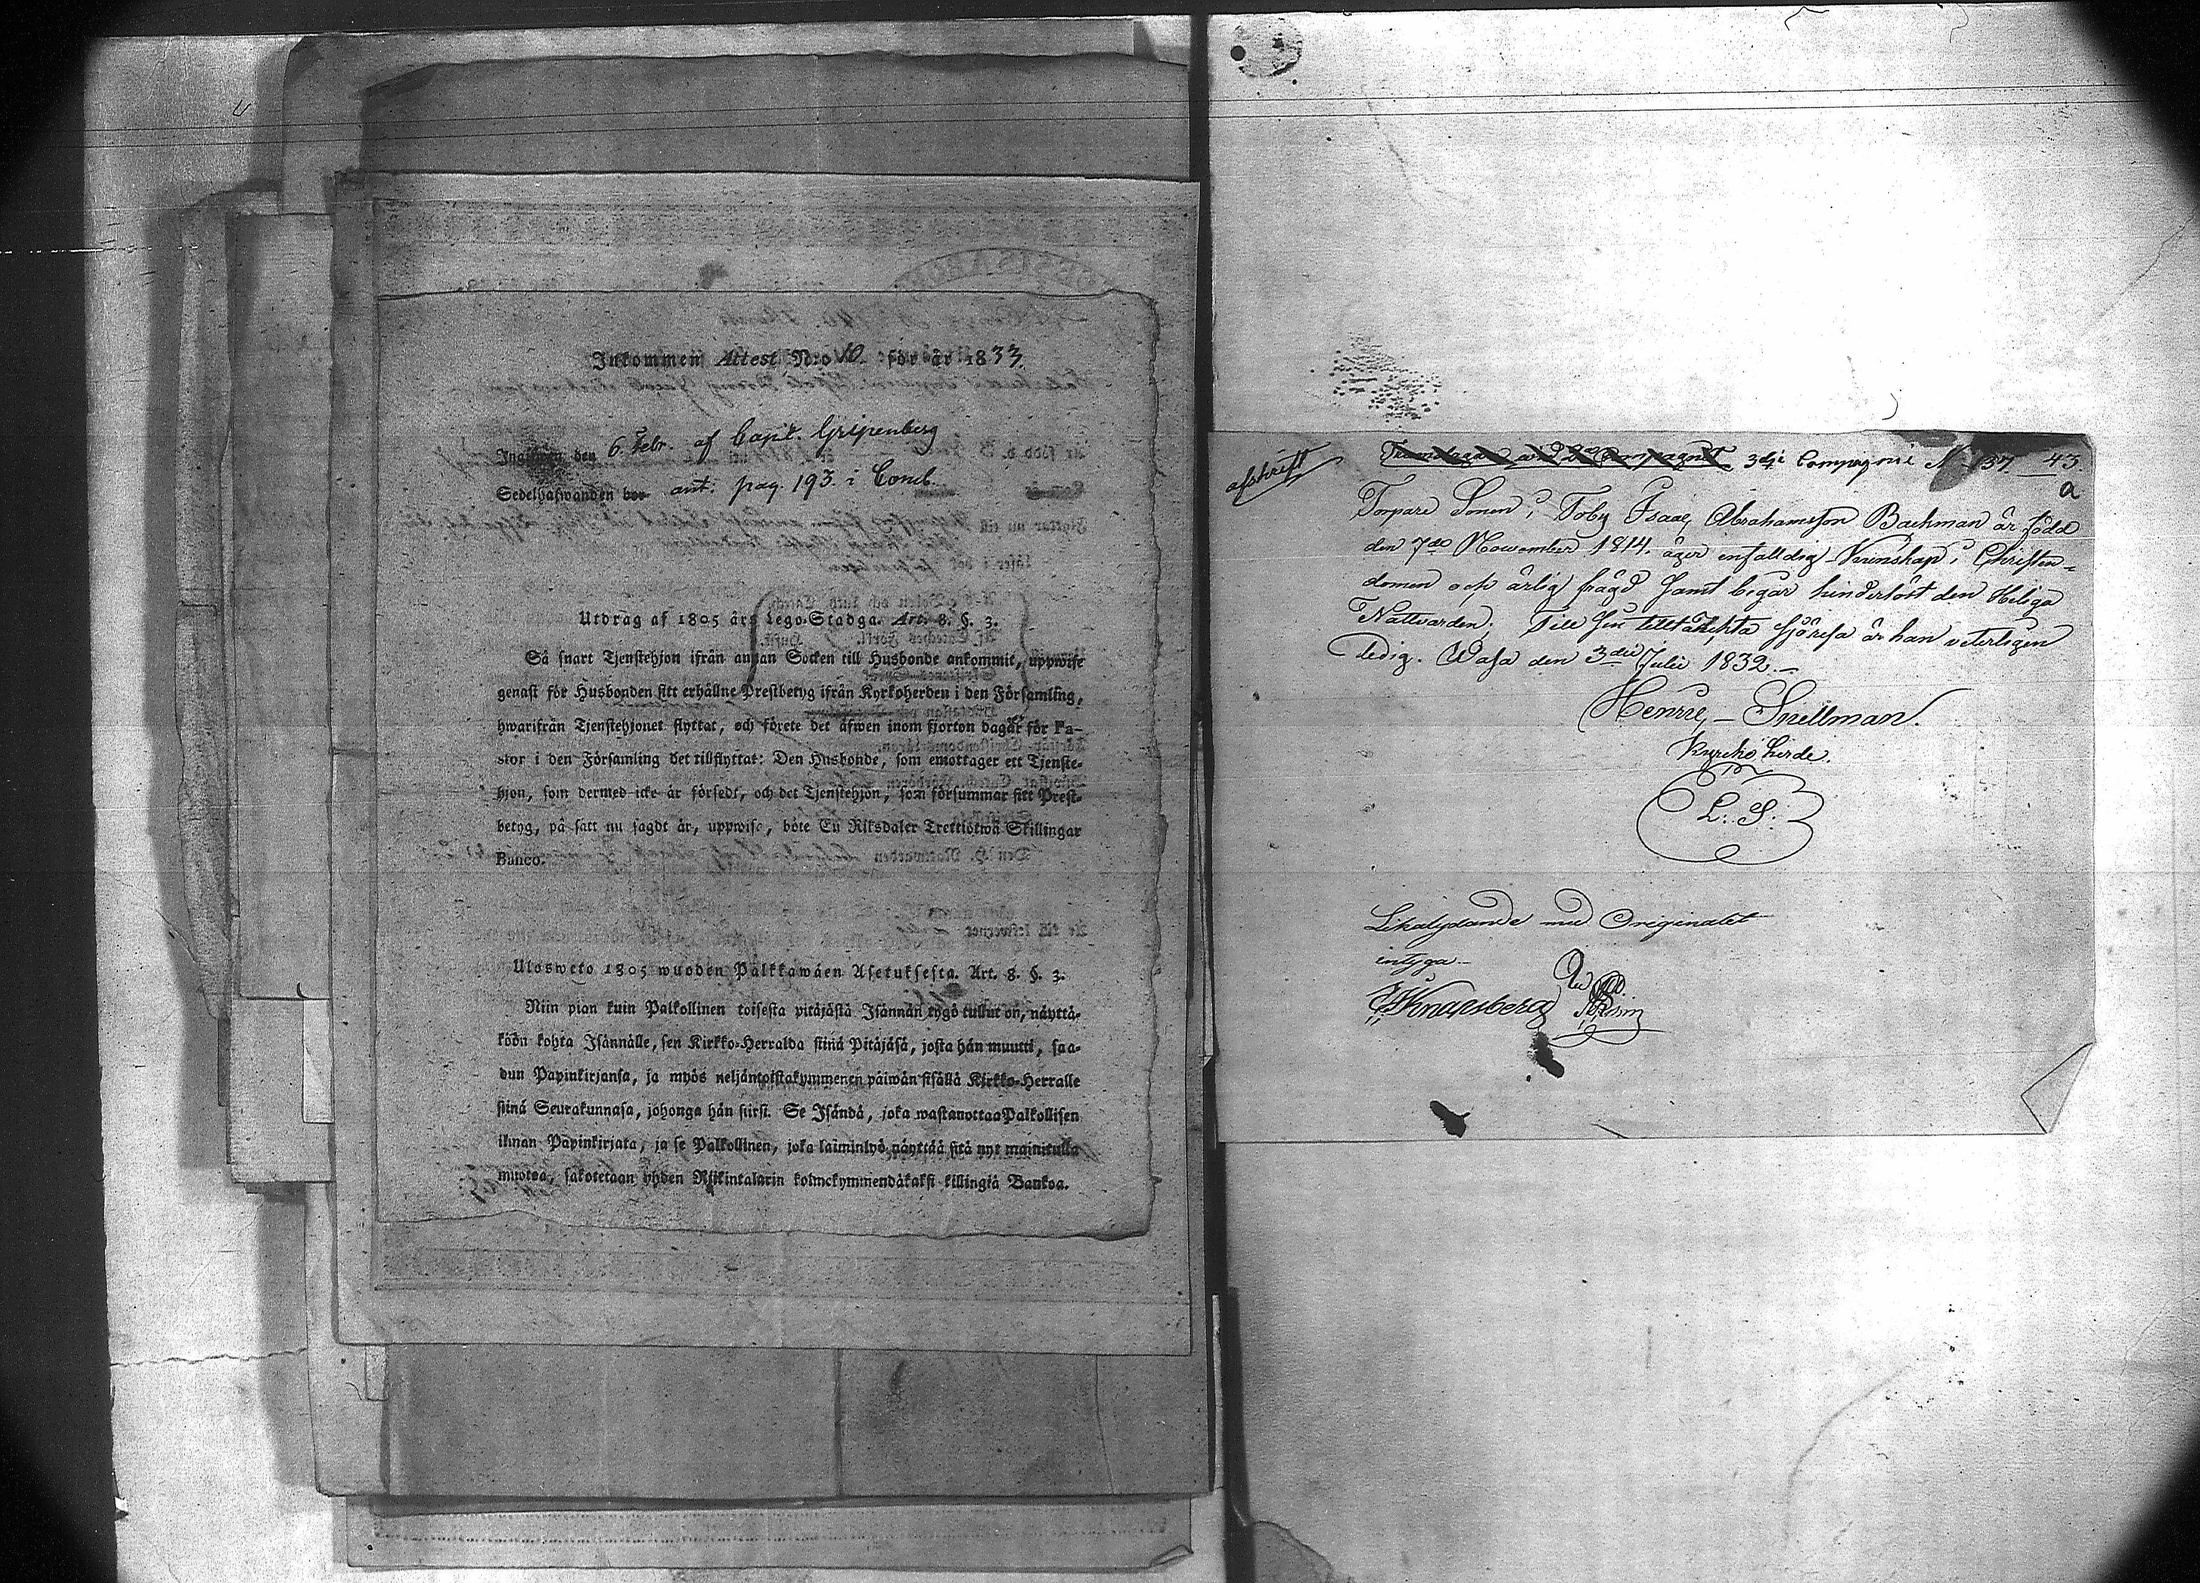 Inkommen Attest N:o 10. för år 1833.
Ingifwen den 6 Febr. af Capt. Gripenberg
Sedelhafwanden bor ant. pag. 193. i Comb.
Utdrag af 1805 års Lego-Stadga. Art. 8. §. 3.
Så snart Tjenstehjon ifrån annan Socken till Husbonde ankommit, uppwise
genast för Husbonden sitt erhållne Prestbetyg ifrån Kyrkoherden i den Församling,
hwarifrån Tjenstehjonet flyttat, och förete det äfwen inom fjorton dagar för Pa-
stor i den Församling det tillflyttat: Den Husbonde, som emottager ett Tjenste-
hjon, som dermed icke är försedt, och det Tjenstehjon, som försummar sitt Prest-
betyg, på sätt nu sagdt är, uppwise, böte En Riksdaler Trettiotwå Skillingar
Banco.
Ulosweto 1805 wuoden Palkkawäen Asetuksesta. Art. 8. §. 3.
Niin pian kuin Palkollinen toisesta pitäjästä Isännän tygö tullut on, näyttä-
köön kohta Isännälle, sen Kirkko-Herralda siinä Pitäjäsä, josta hän muutti, saa-
dun Papinkirjansa, ja myös neljäntoistakymmenen päiwän sisällä Kirkko-Herralle
siinä Seurakunnasa, johonga hän siirsi. Se Isändä, joka wastanottaa Palkollisen
ilman Papinkirjata, ja se Palkollinen, joka laiminlyö näyttää sitä nyt mainitulla
muotoa, sakotetaan yhden Riikintalarin kolmekymmendäkaksi killingiä Bankoa.
afskrift
3dje Compagnie N 137 43
a
Torpare Sonen i Toby Isaac Abrahamsson Backman är född
den 7de November 1814, äger enfalldig Kunskap i Christen-
domen och ärlig frägd samt begår hinderlöst den Heliga
Nattvarden. Till sin tilltänckta sjöresa är han veterligen
ledig. Wasa den 3die Julii 1832.
Henric Snellman.
Kyrcko herde.
L. S.
Likalydande med Originalet
intyga